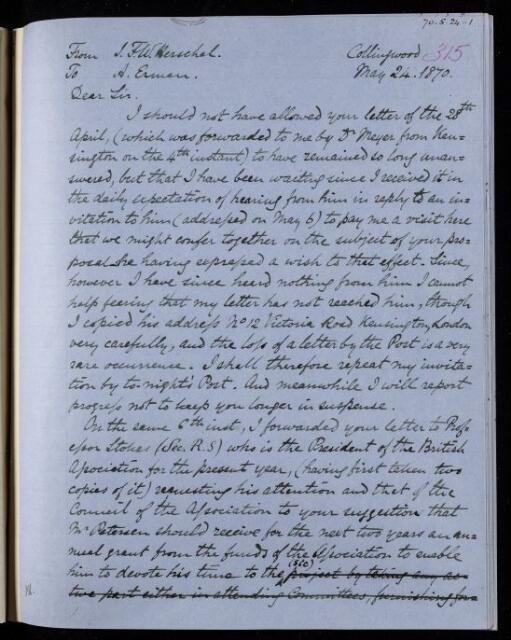 70.5.24-1
315
From J.F.W. Herschel. Collingwood
To A. Erman. May 24. 1870.
Dear Sir.
I should not have allowed your letter of the 28th
April, (which was forwarded to me by Dr Meyer from Ken-
sington on the 4th instant) to have remained so long unan-
swered, but that I have been waiting since I received it in
the daily expectation of hearing from him in reply to an in-
vitation to him (addressed on May 6) to pay me a visit here
that we might confer together on the subject of your pro-
posal he having expressed a wish to that effect. Since,
however I have since heard nothing from him I cannot
help fearing that my letter has not reached him, though
I copied his address No 12 Victoria Road Kensington, London
very carefully, and the loss of a letter by the Post is a very
rare occurrence. I shall therefore repeat my invita-
tion by to-night's Post. And meanwhile I will report
progress not to keep you longer in suspense.
On the same 6th inst, I forwarded your letter to Prof-
essor Stokes (Sec. R.S) who is the President of the British
Association for the present year, (having first taken two
copies of it) requesting his attention and that of the
Council of the Association to your suggestion that
Mr Petersen should receive for the next two years an an-
nual grant from the funds of the Association to enable
(sic)
him to devote his time to the project by taking any ac-
tive part either in attending Committees, furnishing for-